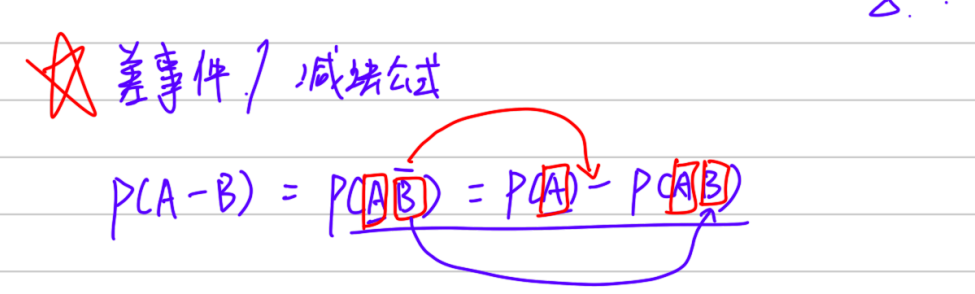 差事件/减法公式
P(A-B) = P(AB̅) = P(A) - P(AB)